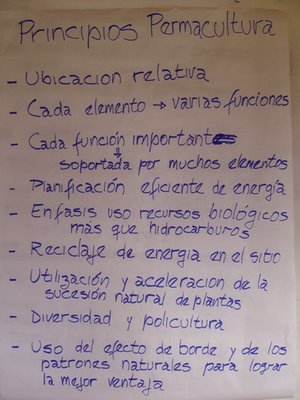 Principios Permacultura
- Ubicacion relativa
- Cada elemento → varias funciones
- Cada función important
soportada por muchos elementos
- Planificación eficiente de energía
- Enfasis uso recursos biológicos
más que hidrocarburos
- Reciclaje de energia en el sitio
- Utilización y aceleracion de la
sucesión natural de plantas
- Diversidad y policultura
- Uso del efecto de borde y de los
patrones naturales para lograr
la mejor ventaja